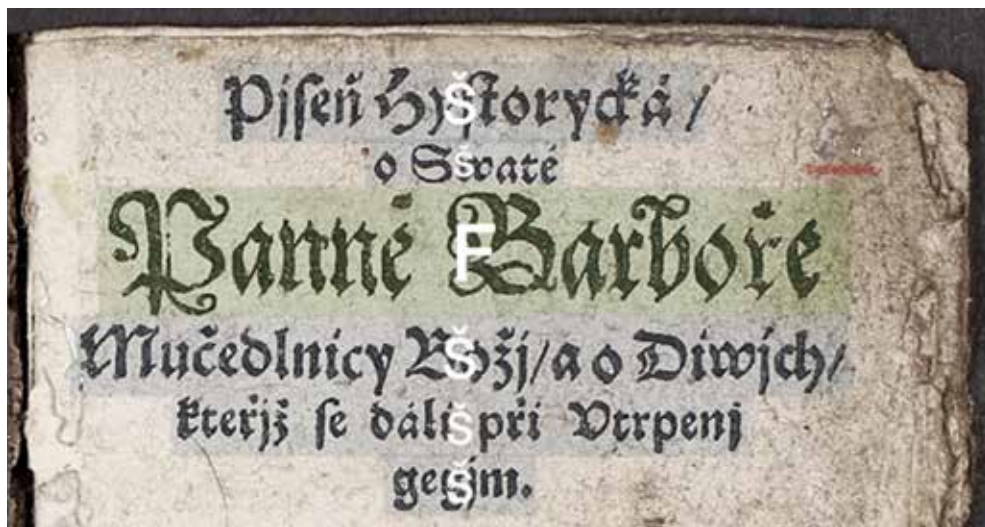 Pjſeň Hyſtorycká /
o Swaté
Panně Barboře
Mučedlnicy Božj/a o Diwjch/
kteřjž ſe dáli při Vtrpenj
gegjm.
Š
Š
F
Š
Š
Š